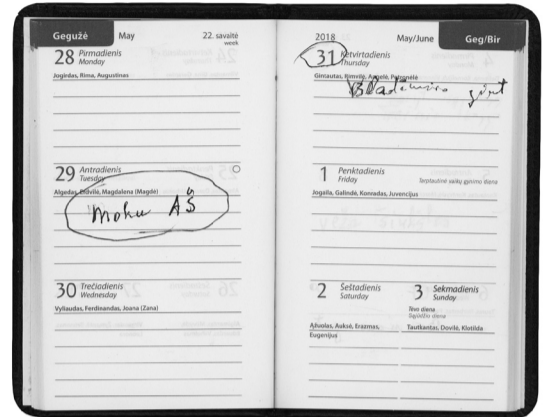 Gegužė May 22. savaitė
week
28 Pirmadienis
Monday
Jogirdas, Rima, Augustinas
29 Antradienis
Tuesday
Algedas, Erdvilė, Magdalena (Magdė)
Moku AŠ
30 Trečiadienis
Wednesday
Vyliaudas, Ferdinandas, Joana (Žana)
2018 May/June Geg/Bir
31 Ketvirtadienis
Thursday
Gintautas, Rimvilė, Angelė, Petronėlė
1 Penktadienis
Friday Tarptautinė vaikų gynimo diena
Jogaila, Galindė, Konradas, Juvencijus
2 Šeštadienis
Saturday
Ąžuolas, Auksė, Erazmas,
Eugenijus
3 Sekmadienis
Sunday
Tėvo diena
Tautkantas, Dovilė, Klotilda